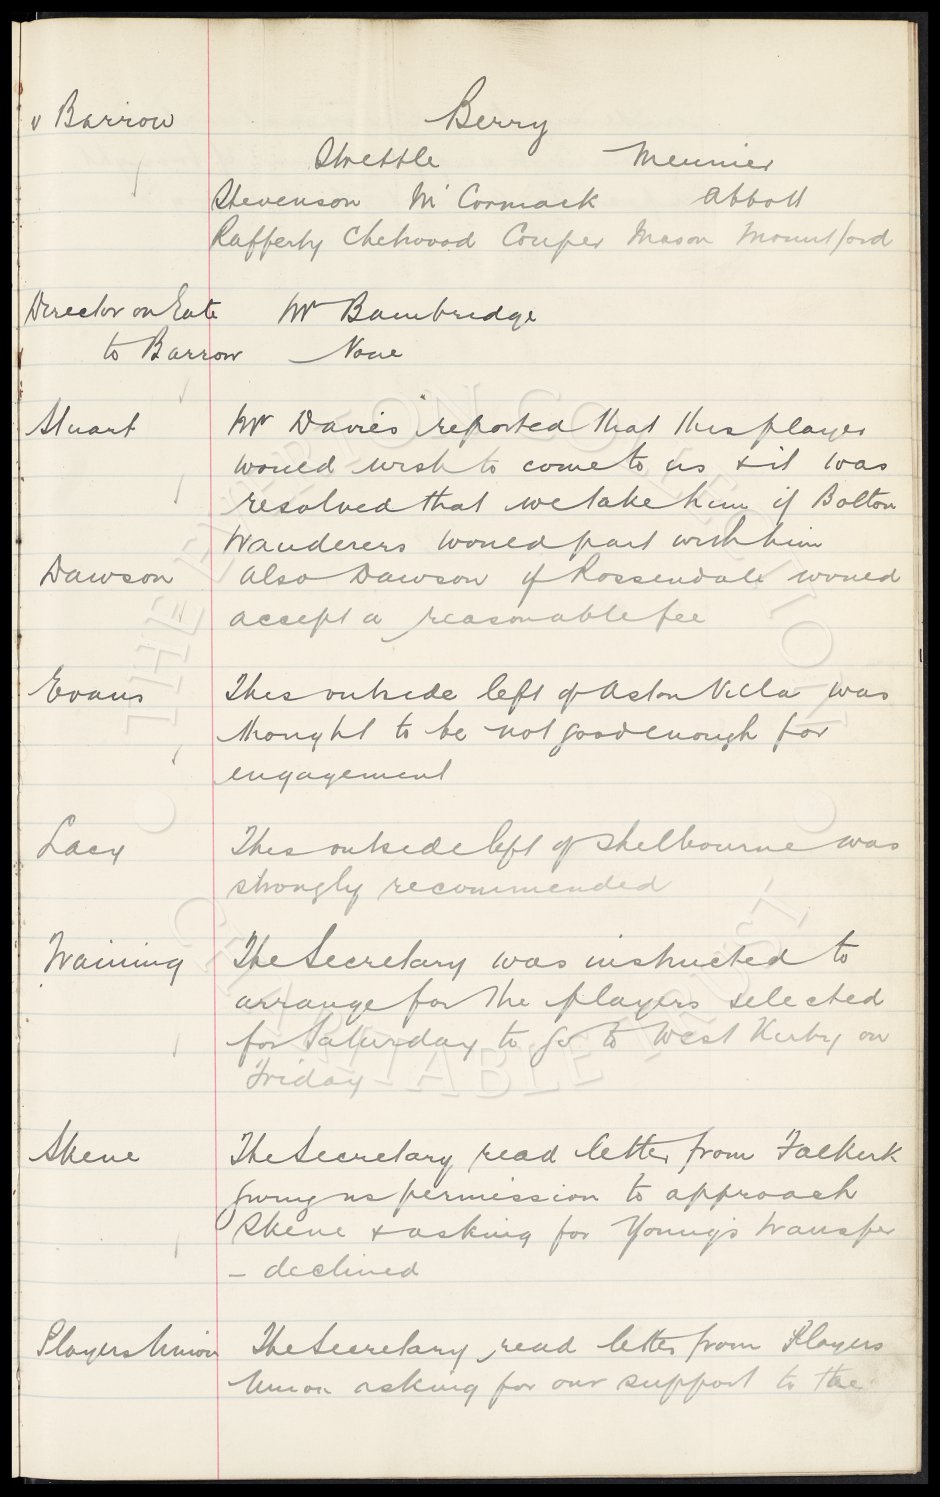 v Barrow Berry
Strettle Meunier
Stevenson McCormack Abbott
Rafferty Chetwood Couper Mason Mountford
Director on Gate Mr Bainbridge
to Barrow None
Stuart Mr Davies reported that this player
would wish to come to us & it was
resolved that we take him if Bolton
Wanderers would part with him
Dawson Also Dawson if Rossendale would
accept a reasonable fee
Evans This outside left of Aston Villa was
thought to be not good enough for
engagement
Lacy This outside left of Shelbourne was
strongly recommended
Training The Secretary was instructed to
arrange for the players selected
for Saturday to go to West Kirby on
Friday
Skene The Secretary read letter from Falkirk
giving us permission to approach
Skene & asking for Young's transfer
– declined
Players Union The Secretary read letter from Players
Union asking for our support to the
THE EVERTON COLLECTION
CHARITABLE TRUST